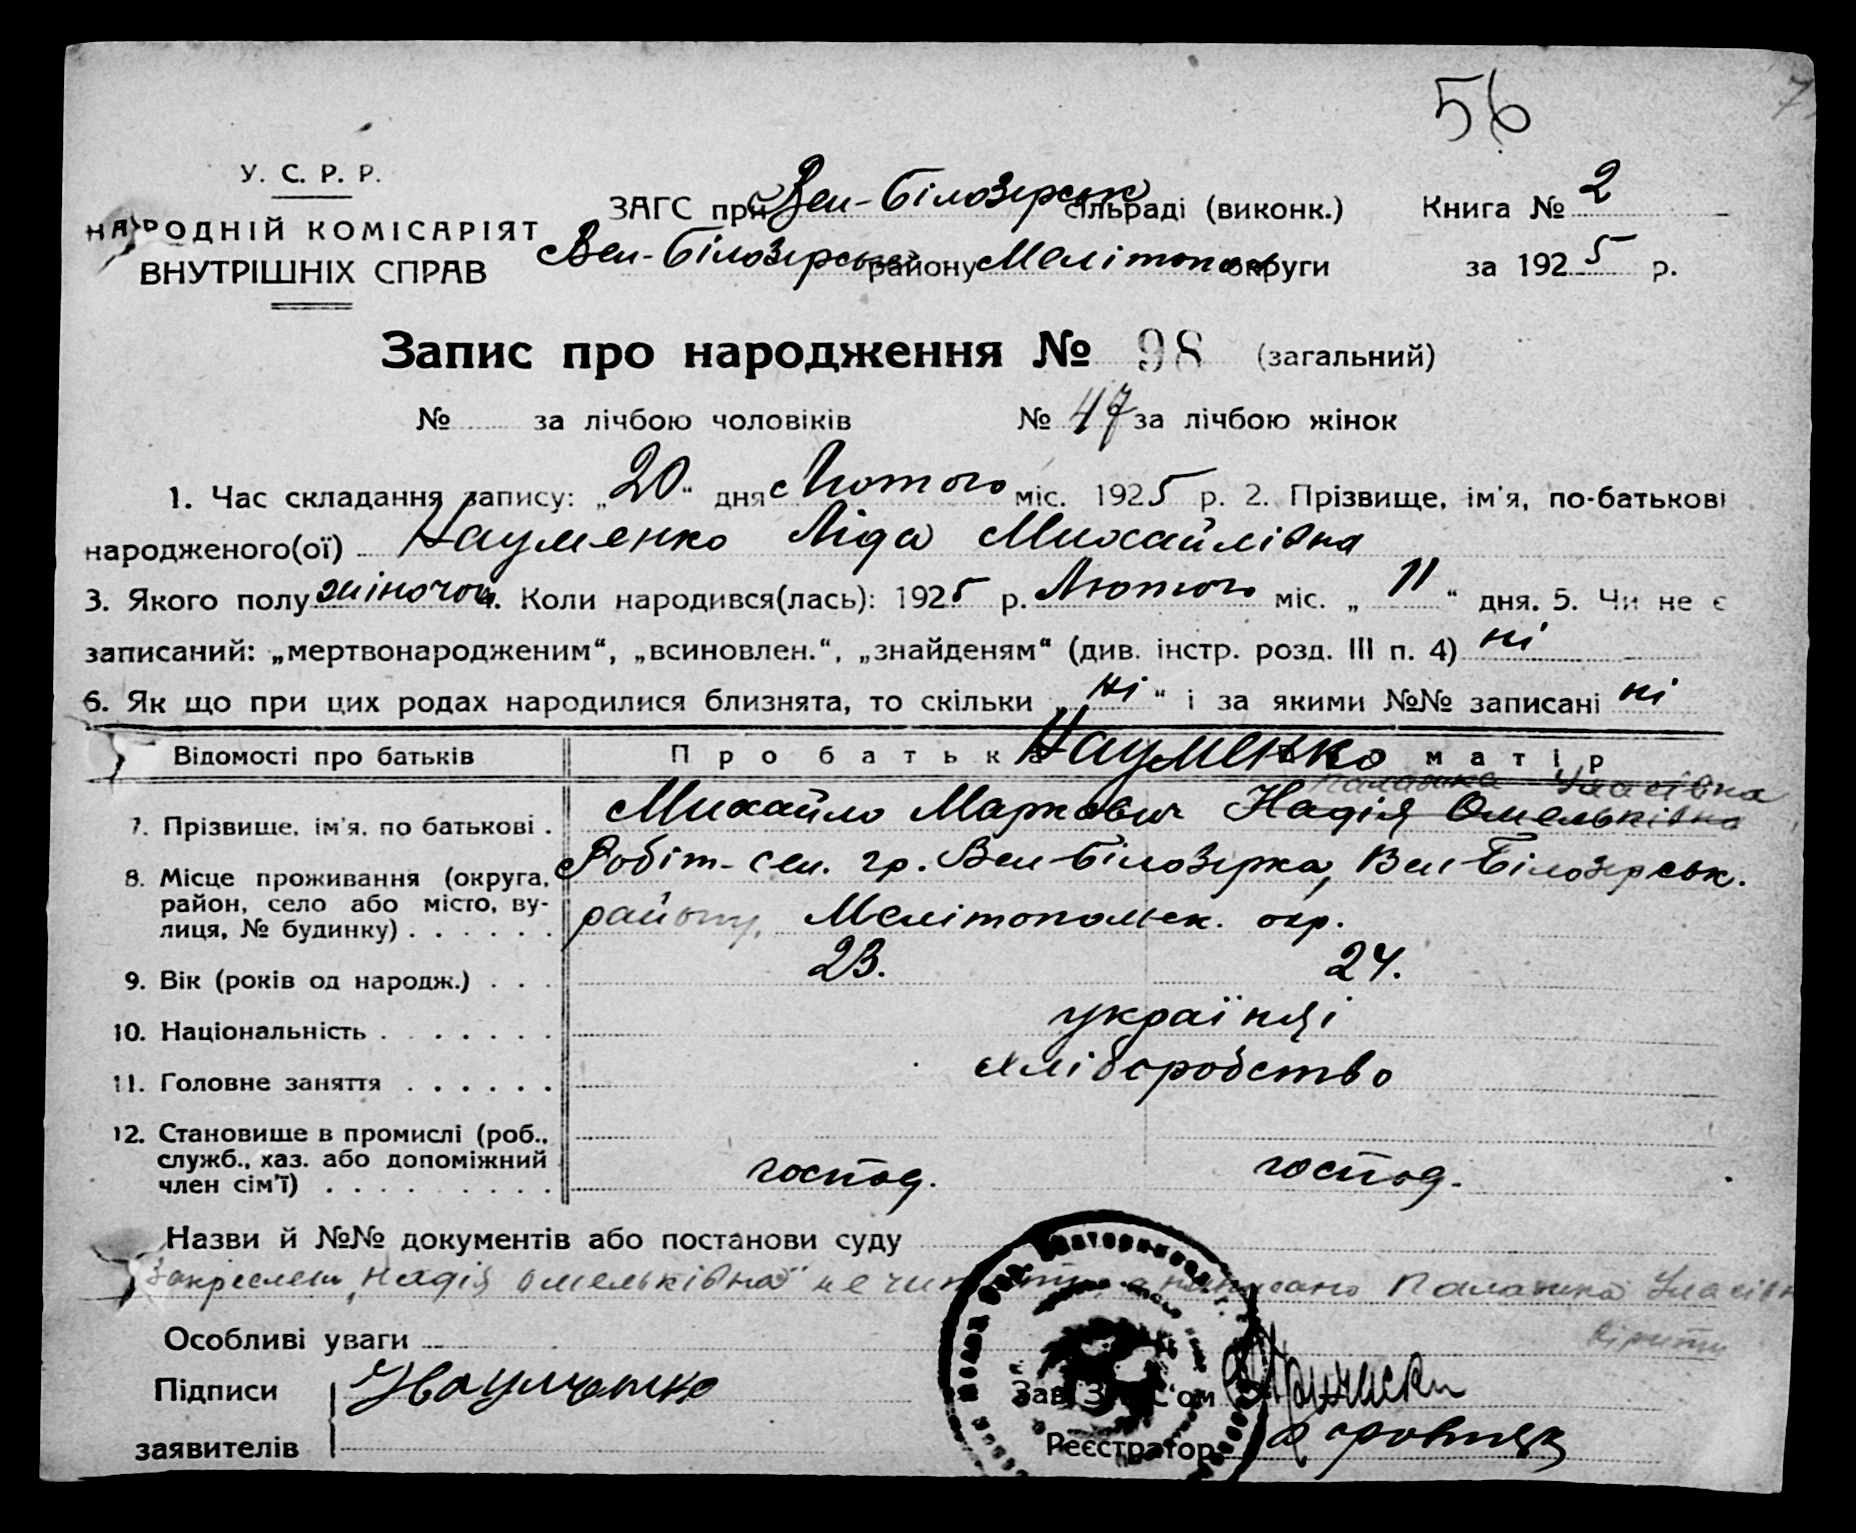 56
7
У. С. Р. Р.
НАРОДНІЙ КОМІСАРІЯТ
ВНУТРІШНІХ СПРАВ
ЗАГС при Вел-Білозерськ сільраді (виконк.) Книга № 2
Вел-Білозерськ району Мелітопол округи за 1925 р.
Запис про народження № 98 (загальний)
№ за лічбою чоловіків № 47 за лічбою жінок
1. Час складання запису: „20“ дня Лютого міс. 1925 р. 2. Прізвище, ім'я, по-батькові
народженого(ої) Науменко Ліда Михайлівна
3. Якого полу жіночог 4. Коли народився(лась): 1925 р. Лютого міс. „11“ дня. 5. Чи не є
записаний: „мертвонародженим“, „всиновлен.“, „знайденям“ (див. інстр. розд. III п. 4) ні
6. Як що при цих родах народилися близнята, то скільки „ні“ і за якими №№ записані ні
Відомості про батьків Про батька Науменко матір
Палажка Уласівна
7. Прізвище, ім'я, по батькові . Михайло Маркович Надія Омельківна
8. Місце проживання (округа, Робіт-сел. гр. Вел-Білозірка, Вел Білозірськ.
район, село або місто, ву-
лиця, № будинку) . . . . . . району, Мелітопольськ. окр.
9. Вік (років од народж.) . . . 23. 24.
10. Національність . . . . . . . українці
11. Головне заняття . . . . . . хліборобство
12. Становище в промислі (роб.,
служб., хаз. або допоміжний
член сім'ї) . . . . . . . . . господ. господ.
Назви й №№ документів або постанови суду
Закреслене „Надія Омельківна“ не читати, а написано Палажка Уласівн
вірити
Особливі уваги
Підписи Науменко Зав. ЗАГС'ом
заявителів Реєстратор